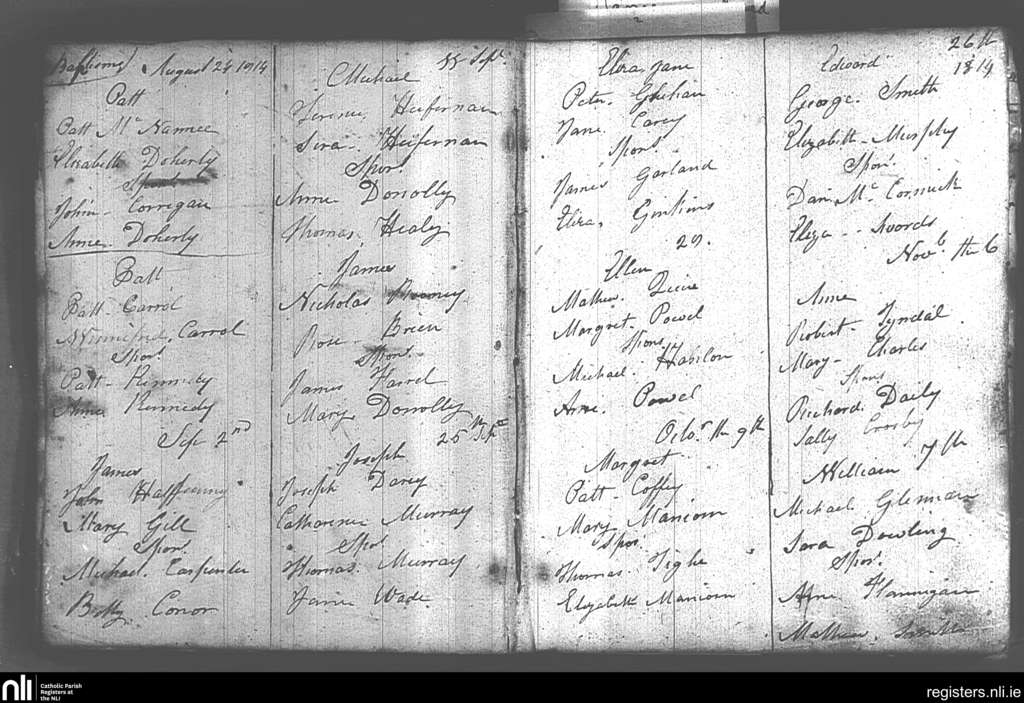 Baptisms August 24 1814
Patt
Patt McNamee
Elizabeth Doherty
Sponr
John - Corrigan
Anne Doherty
Patt
Patt Carrol
Winnifred Carrol
Sponr
Patt - Kennedy
Anne Kennedy
Sep 2nd
James
John Halfpenny
Mary Gill
Sponr
Michael Carpenter
Betty Conor
Michael 18 Sepr
Heifernan
Sera Heifernan
Sponr
Anne Donolly
Thomas Healy
James
Nicholas Rooney
Rose - Brien
Sponr
James Farrel
Mary Donolly
25th Sepr
Joseph
Joseph Darcy
Catharine Murray
Sponr
Thomas Murray
James Wade
Eliza Jane
Peter
Jane Carey
Sponr
James Garland
Eliza
29.
Ellen
Mathew
Margret Powel
Sponr
Michael Hanlon
Anne Powel
Octobr th 9th
Margret
Patt - Coffey
Mary Maniom
Sponr
Thomas Tighe
Elizabeth Maniom
26th
Edward 1814
George Smith
Elizabeth - Murphy
Sponr
Dan McCormick
Eliza - - Swords
Novbr th 6
Anne
Robert - Tyndal
Mary - Charles
Sponr
Richard Daily
Sally Crosby
William 7th
Michael Glennan
Sera Dowling
Sponr
Anne Flannigan
Mathew Smith
nli
Catholic Parish
Registers at
the NLI
registers.nli.ie